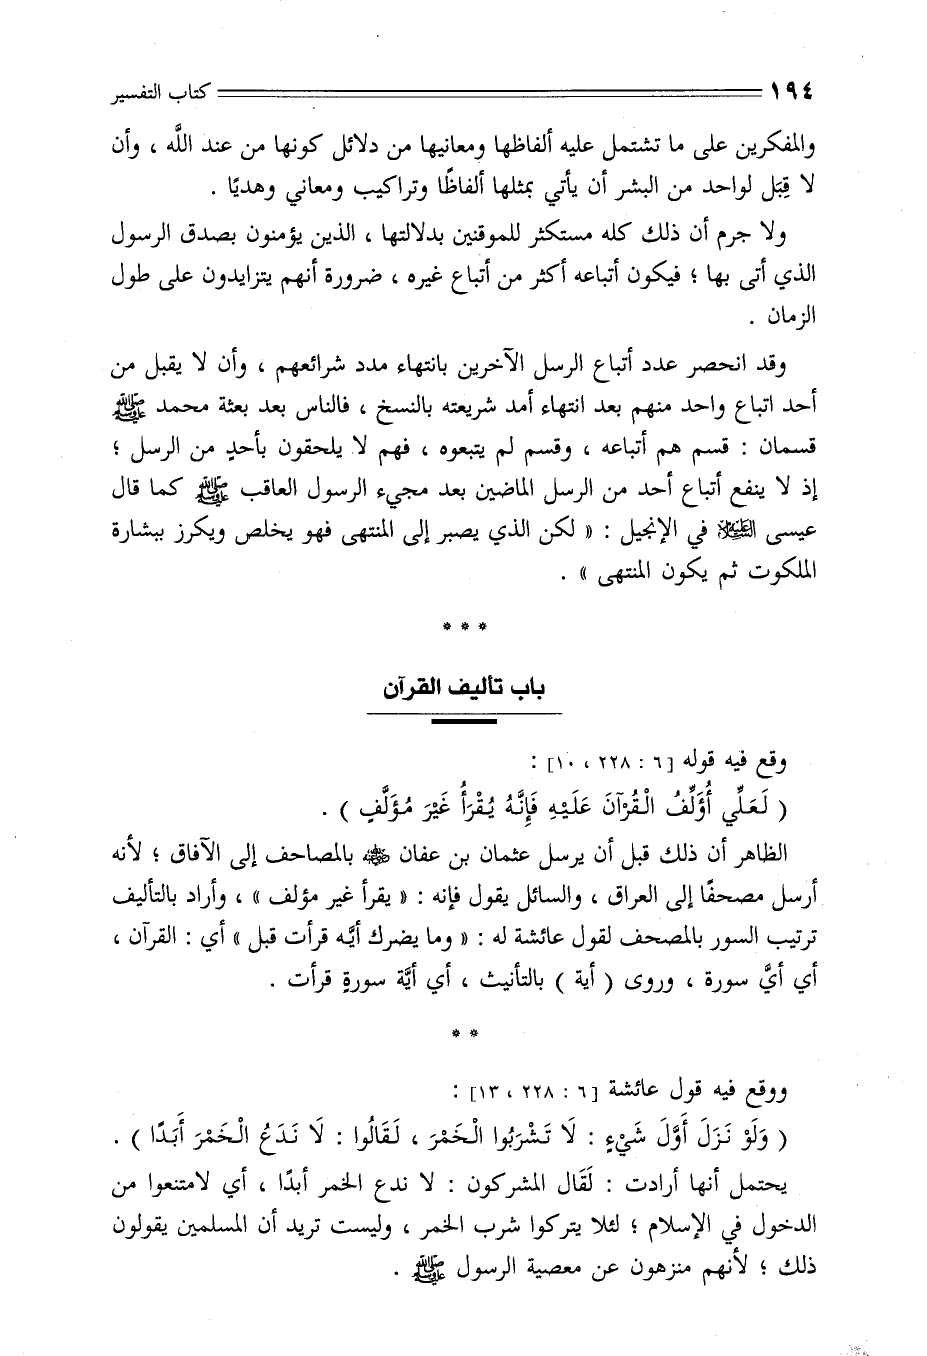 ١٩٤ كتاب التفسير
والمفكرين على ما تشتمل عليه ألفاظها ومعانيها من دلائل كونها من عند اللَّه ، وأن
لا قِبَل لواحد من البشر أن يأتي بمثلها ألفاظًا وتراكيب ومعاني وهديًا .
ولا جرم أن ذلك كله مستكثر للموقنين بدلالتها ، الذين يؤمنون بصدق الرسول
الذي أتى بها ؛ فيكون أتباعه أكثر من أتباع غيره ، ضرورة أنهم يتزايدون على طول
الزمان .
وقد انحصر عدد أتباع الرسل الآخرين بانتهاء مدد شرائعهم ، وأن لا يقبل من
أحد اتباع واحد منهم بعد انتهاء أمد شريعته بالنسخ ، فالناس بعد بعثة محمد ﷺ
قسمان : قسم هم أتباعه ، وقسم لم يتبعوه ، فهم لا يلحقون بأحدٍ من الرسل ؛
إذ لا ينفع أتباع أحد من الرسل الماضين بعد مجيء الرسول العاقب ﷺ كما قال
عيسى العليه السلام في الإنجيل : « لكن الذي يصبر إلى المنتهى فهو يخلص ويكرز ببشارة
الملكوت ثم يكون المنتهى » .
* * *
باب تأليف القرآن
وقع فيه قوله [ ٦ : ٢٢٨ ، ١٠] :
( لَعَلِّي أُؤَلِّفُ الْقُرْآنَ عَلَيْهِ فَإِنَّهُ يُقْرَأُ غَيْرَ مُؤَلَّفٍ ) .
الظاهر أن ذلك قبل أن يرسل عثمان بن عفان رضي الله عنه بالمصاحف إلى الآفاق ؛ لأنه
أرسل مصحفًا إلى العراق ، والسائل يقول فإنه : « يقرأ غير مؤلف » ، وأراد بالتأليف
ترتيب السور بالمصحف لقول عائشة له : « وما يضرك أيَّه قرأت قبل » أي : القرآن ،
أي أيَّ سورة ، وروى ( أية ) بالتأنيث ، أي أيَّة سورةٍ قرأت .
* *
ووقع فيه قول عائشة [ ٦ : ٢٢٨ ، ١٣] :
( وَلَوْ نَزَلَ أَوَّلَ شَيْءٍ : لَا تَشْرَبُوا الْخَمْرَ ، لَقَالُوا : لَا نَدَعُ الْخَمْرَ أَبَدًا ) .
يحتمل أنها أرادت : لَقَال المشركون : لا ندع الخمر أبدًا ، أي لامتنعوا من
الدخول في الإسلام ؛ لئلا يتركوا شرب الخمر ، وليست تريد أن المسلمين يقولون
ذلك ؛ لأنهم منزهون عن معصية الرسول ﷺ .